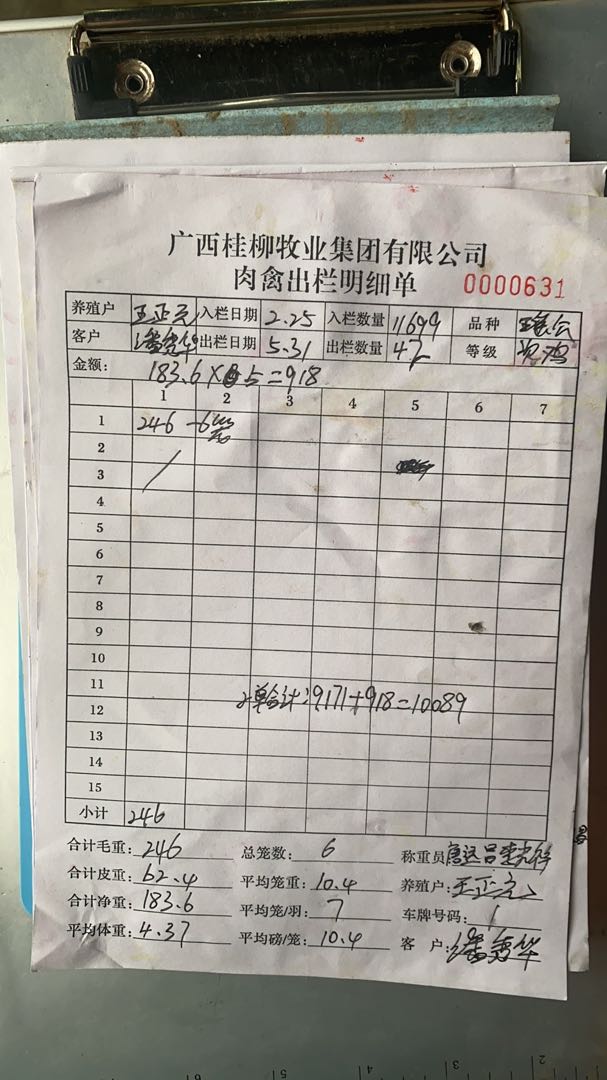 广西桂柳牧业集团有限公司
肉禽出栏明细单 0000631
养殖户 王正元 入栏日期 2.25 入栏数量 11699 品种
客户 潘秀华 出栏日期 5.31 出栏数量 42 等级 鸡
金额: 183.6×5=918
1 2 3 4 5 6 7
1 246 -6
2
3
4
5
6
7
8
9
10
11
12 2单合计:9171+918=10089
13
14
15
小计 246
合计毛重: 246 总笼数: 6 称重员
合计皮重: 62.4 平均笼重: 10.4 养殖户: 王正元
合计净重: 183.6 平均笼/羽: 7 车牌号码: 1
平均体重: 4.37 平均磅/笼: 10.4 客 户: 潘秀华